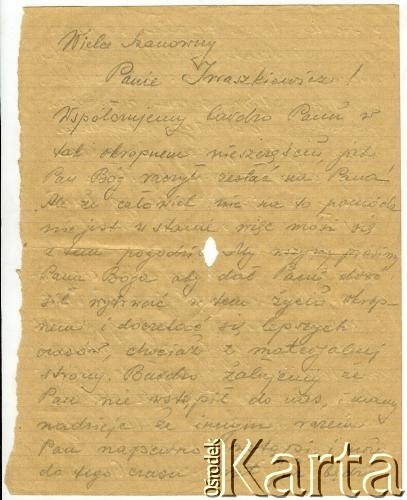 Wielce Szanowny
Panie Iwaszkiewicz!
Współczujemy bardzo Panu w
tak okropnem nieszczęściu jak
Pan Bóg raczył zesłać na Pana!
Ale że człowiek nic na to pomódz
nie jest w stanie więc musi się
z tem pogodzić. My wszyscy prosimy
Pana Boga aby dał Panu dość
sił wytrwać w tem życiu okrop-
nem i doczekać się lepszych
czasów, chociaż z materjalnej
strony. Bardzo żałujemy że
Pan nie wstąpił do nas, i mamy
nadzieję że innym razem
Pan napewno
do tego czasu
Ośrodek
Karta